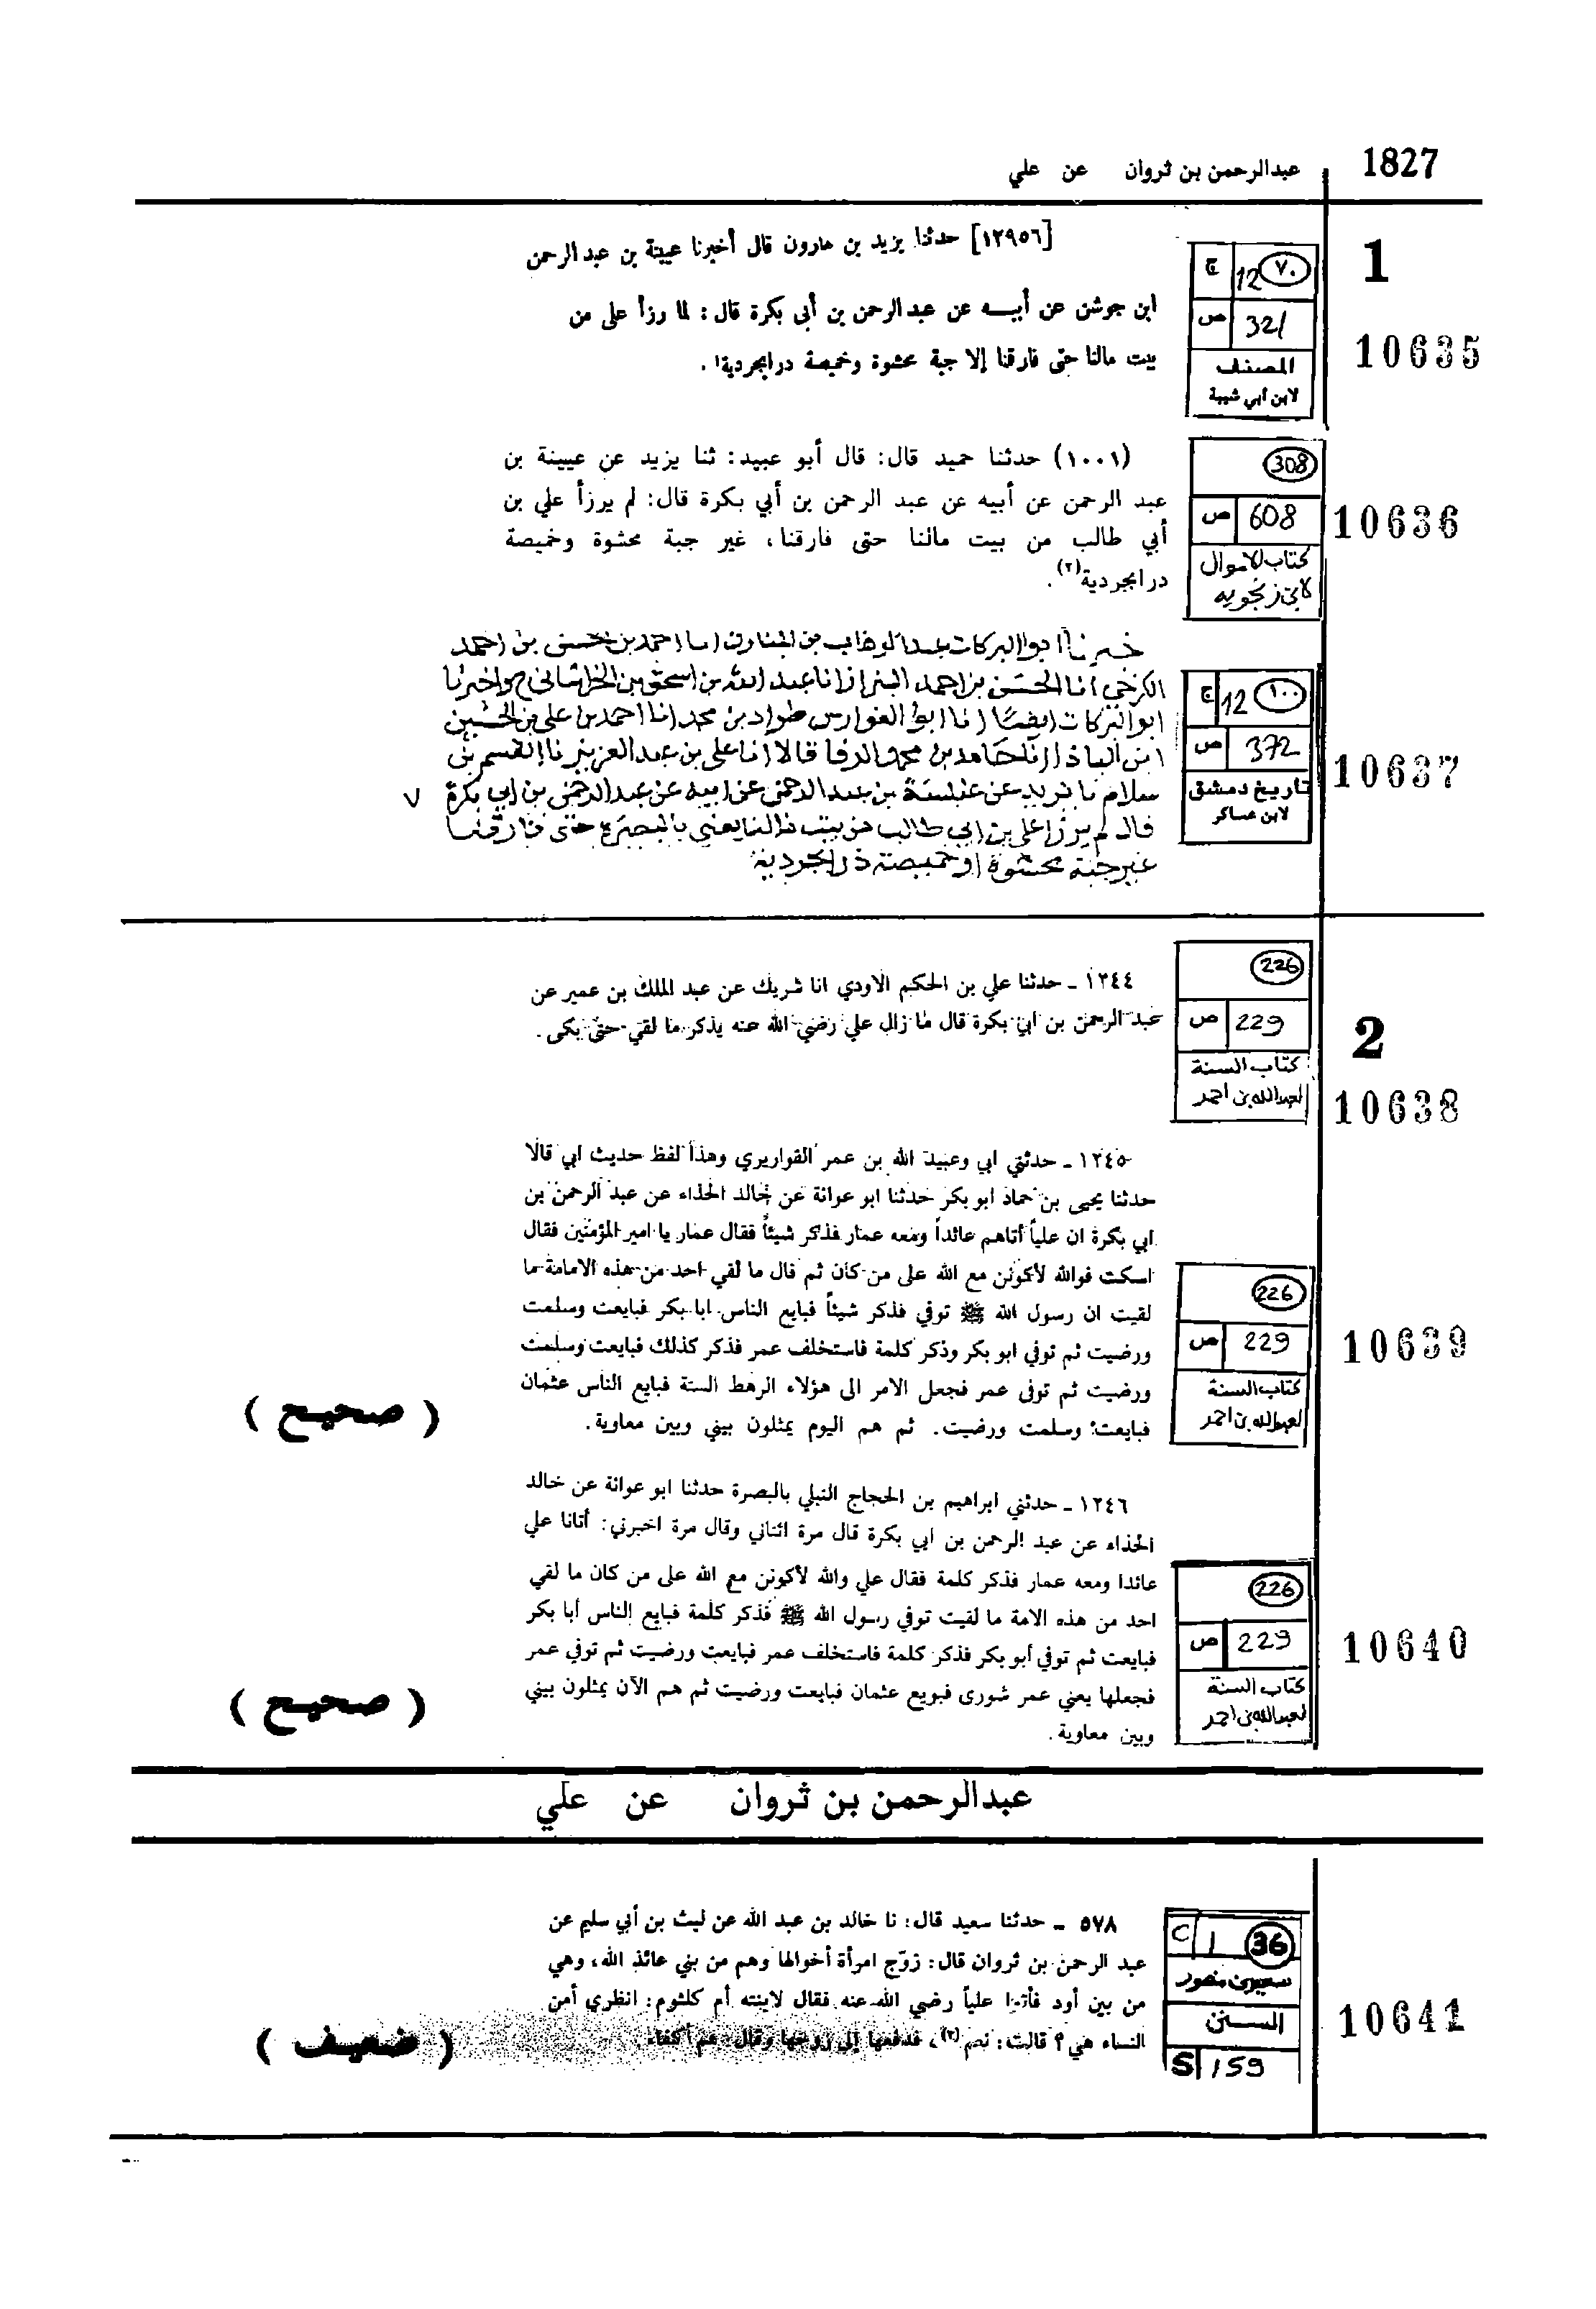 عبدالرحمن بن ثروان عن علي 1827
1
[١٢٩٥٦] حدثنا يزيد بن هارون قال أخبرنا عيينة بن عبد الرحمن
ابن جوشن عن أبيه عن عبد الرحمن بن أبى بكرة قال: لما رزأ على من
بيت مالنا حتى فارقنا إلا جبة محشوة وخميصة درابجردية١.
ج 12 ٧٠
ص 321
المصنف
لابن أبي شيبة
10635
(١٠٠١) حدثنا حميد قال: قال أبو عبيد: ثنا يزيد عن عيينة بن
عبد الرحمن عن أبيه عن عبد الرحمن بن أبي بكرة قال: لم يرزأ علي بن
أبي طالب من بيت مالنا حتى فارقنا، غير جبة محشوة وخميصة
درابجردية(٢).
308
ص 608
كتاب الاموال
لابن زنجويه
10636
ابو البركات عبد الوهاب بن المبارك انا احمد بن الحسن بن احمد
الكرخي انا الحسن بن احمد البزاز انا عبد الله بن اسحق بن الخراساني ح واخبرنا
ابو البركات ايضا انا ابو الفوارس طراد بن محمد انا احمد بن علي بن الحسين
ابن الباذا انا حامد بن محمد الرفا قالا انا علي بن عبد العزيز نا القسم بن
سلام نا يزيد عن عنبسة بن عبد الرحمن عن ابيه عن عبد الرحمن بن ابي بكرة ٧
قال لم يرزا علي بن ابي طالب من بيت مالنا يعني بالبصرة حتى فارقنا
غير جبة محشوة او خميصة درابجردية
ج 12 ١٠٠
ص 372
تاريخ دمشق
لابن عساكر
10637
2
١٢٤٤ - حدثنا علي بن الحكم الاودي انا شريك عن عبد الملك بن عمير عن
عبد الرحمن بن ابي بكرة قال ما زال علي رضي الله عنه يذكر ما لقي حتى بكى.
226
ص 229
كتاب السنة
لعبدالله بن احمد
10638
١٢٤٥ - حدثني ابي وعبيد الله بن عمر القواريري وهذا لفظ حديث ابي قالا
حدثنا يحيى بن حماد ابو بكر حدثنا ابو عوانة عن خالد الحذاء عن عبد الرحمن بن
ابي بكرة ان علياً أتاهم عائداً ومعه عمار فذكر شيئاً فقال عمار يا امير المؤمنين فقال
اسكت فوالله لأكونن مع الله على من كان ثم قال ما لقي احد من هذه الامامة ما
لقيت ان رسول الله ﷺ توفي فذكر شيئاً فبايع الناس ابا بكر فبايعت وسلمت
ورضيت ثم توفي ابو بكر وذكر كلمة فاستخلف عمر فذكر كذلك فبايعت وسلمت
ورضيت ثم توفى عمر فجعل الامر الى هؤلاء الرهط الستة فبايع الناس عثمان
فبايعت وسلمت ورضيت. ثم هم اليوم يمثلون بيني وبين معاوية.
( صحيح )
226
ص 229
كتاب السنة
لعبدالله بن احمد
10639
١٢٤٦ - حدثني ابراهيم بن الحجاج النيلي بالبصرة حدثنا ابو عوانة عن خالد
الحذاء عن عبد الرحمن بن ابي بكرة قال مرة اثناني وقال مرة اخبرني: أتانا علي
عائدا ومعه عمار فذكر كلمة فقال علي والله لأكونن مع الله على من كان ما لقي
احد من هذه الامة ما لقيت توفي رسول الله ﷺ فذكر كلمة فبايع الناس أبا بكر
فبايعت ثم توفي أبو بكر فذكر كلمة فاستخلف عمر فبايعت ورضيت ثم توفي عمر
فجعلها يعني عمر شورى فبويع عثمان فبايعت ورضيت ثم هم الآن يمثلون بيني
وبين معاوية.
( صحيح )
226
ص 229
كتاب السنة
لعبدالله بن احمد
10640
عبدالرحمن بن ثروان عن علي
٥٧٨ - حدثنا سعيد قال: نا خالد بن عبد الله عن ليث بن أبي سليم عن
عبد الرحمن بن ثروان قال: زوّج امرأة أخوالها وهم من بني عائذ الله، وهي
من بين أود فأتوا علياً رضي الله عنه فقال لابنته أم كلثوم: انظري أمن
النساء هي؟ قالت: نعم(٢)، فدفعها إلى زوجها وقال: هم أكفاء.
( ضعيف )
C 1 36
سعيد بن منصور
السنن
S 159
10641